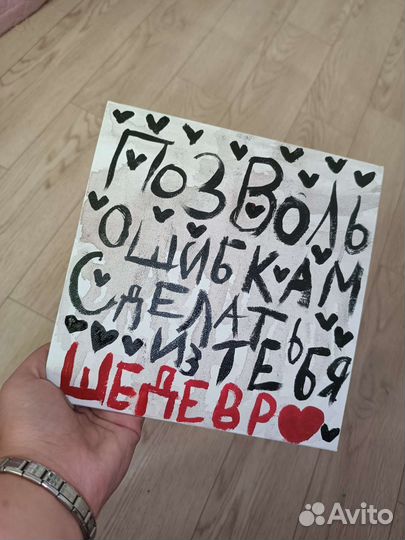 ПОЗВОЛЬ
ОШИБКАМ
СДЕЛАТЬ
ИЗ ТЕБЯ
ШЕДЕВР
Avito